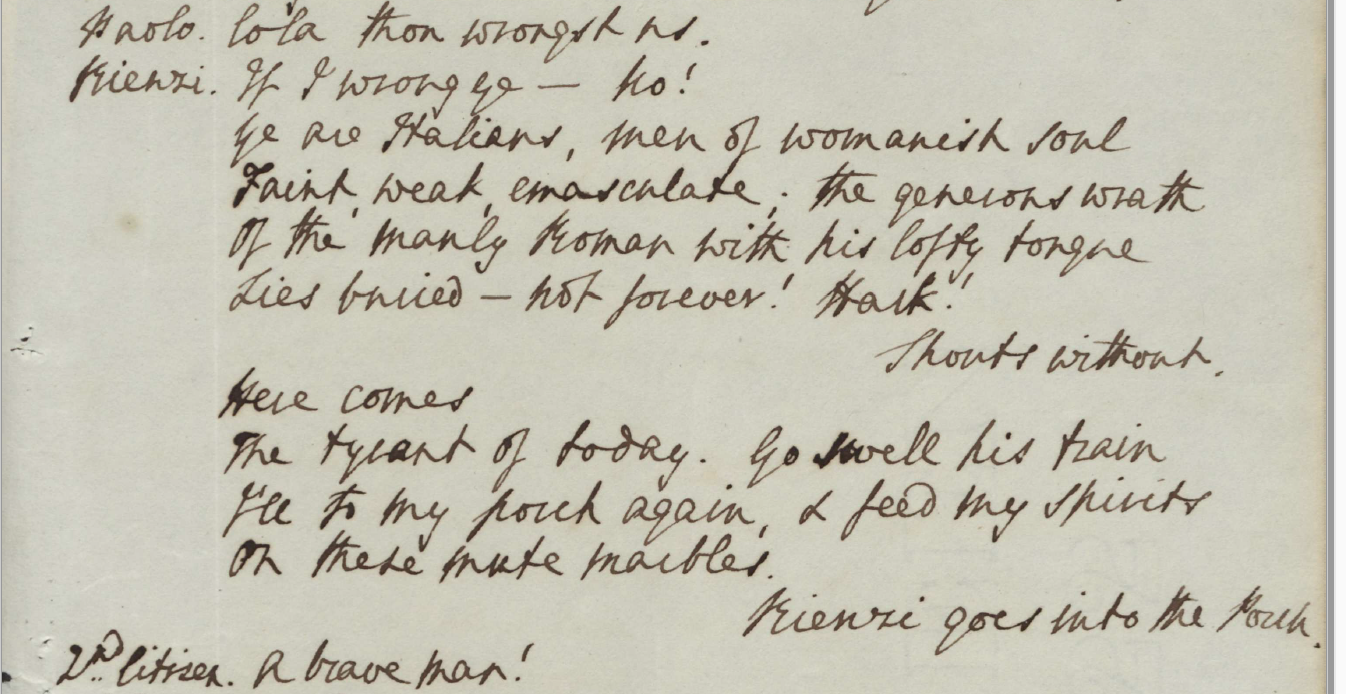 Paolo. Cola thou wrongst us.
Rienzi. If I wrong ye — No!
Ye are Italians, men of womanish soul
Faint, weak, emasculate; the generous wrath
Of the manly Roman with his lofty tongue
Lies buried — not forever! Hark!
Shouts without.
Here comes
The tyrant of today. Go swell his train
I'll to my porch again, & feed my spirits
On these mute marbles.
Rienzi goes into the Porch.
2nd Citizen. A brave man!